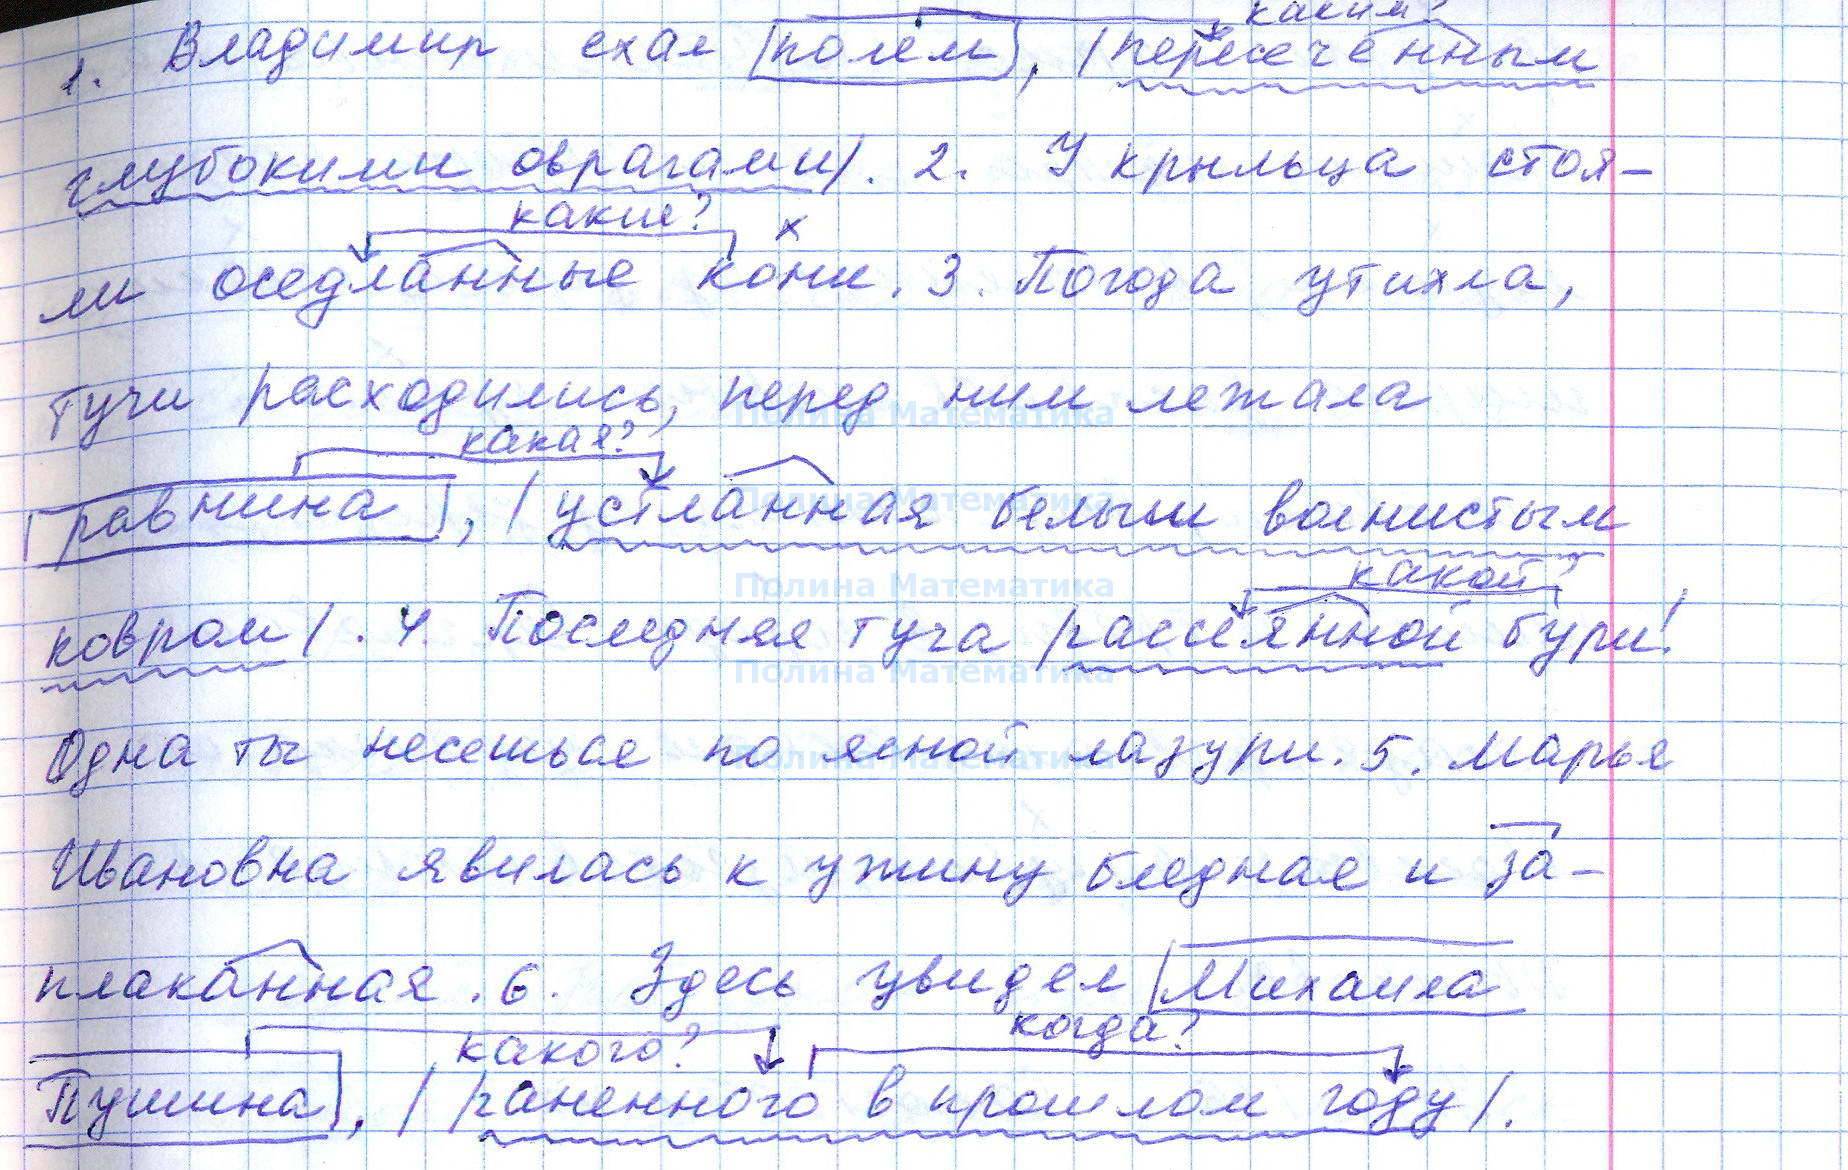 каким?
1. Владимир ехал |полем|, |пересечённым
глубокими оврагами|. 2. У крыльца стоя-
какие? х
ли оседланные кони. 3. Погода утихла,
тучи расходились, перед ним лежала
Полина Математика
какая?
|равнина|, |устланная белым волнистым
Полина Математика
какой?
Полина Математика
ковром|. 4. Последняя туча |рассеянной бури|!
Полина Математика
Одна ты несешься по ясной лазури. 5. Марья
Полина Математика
Ивановна явилась к ужину бледная и за-
плаканная. 6. Здесь увидел |Михаила
какого? когда?
Пущина|, |раненного в прошлом году|.